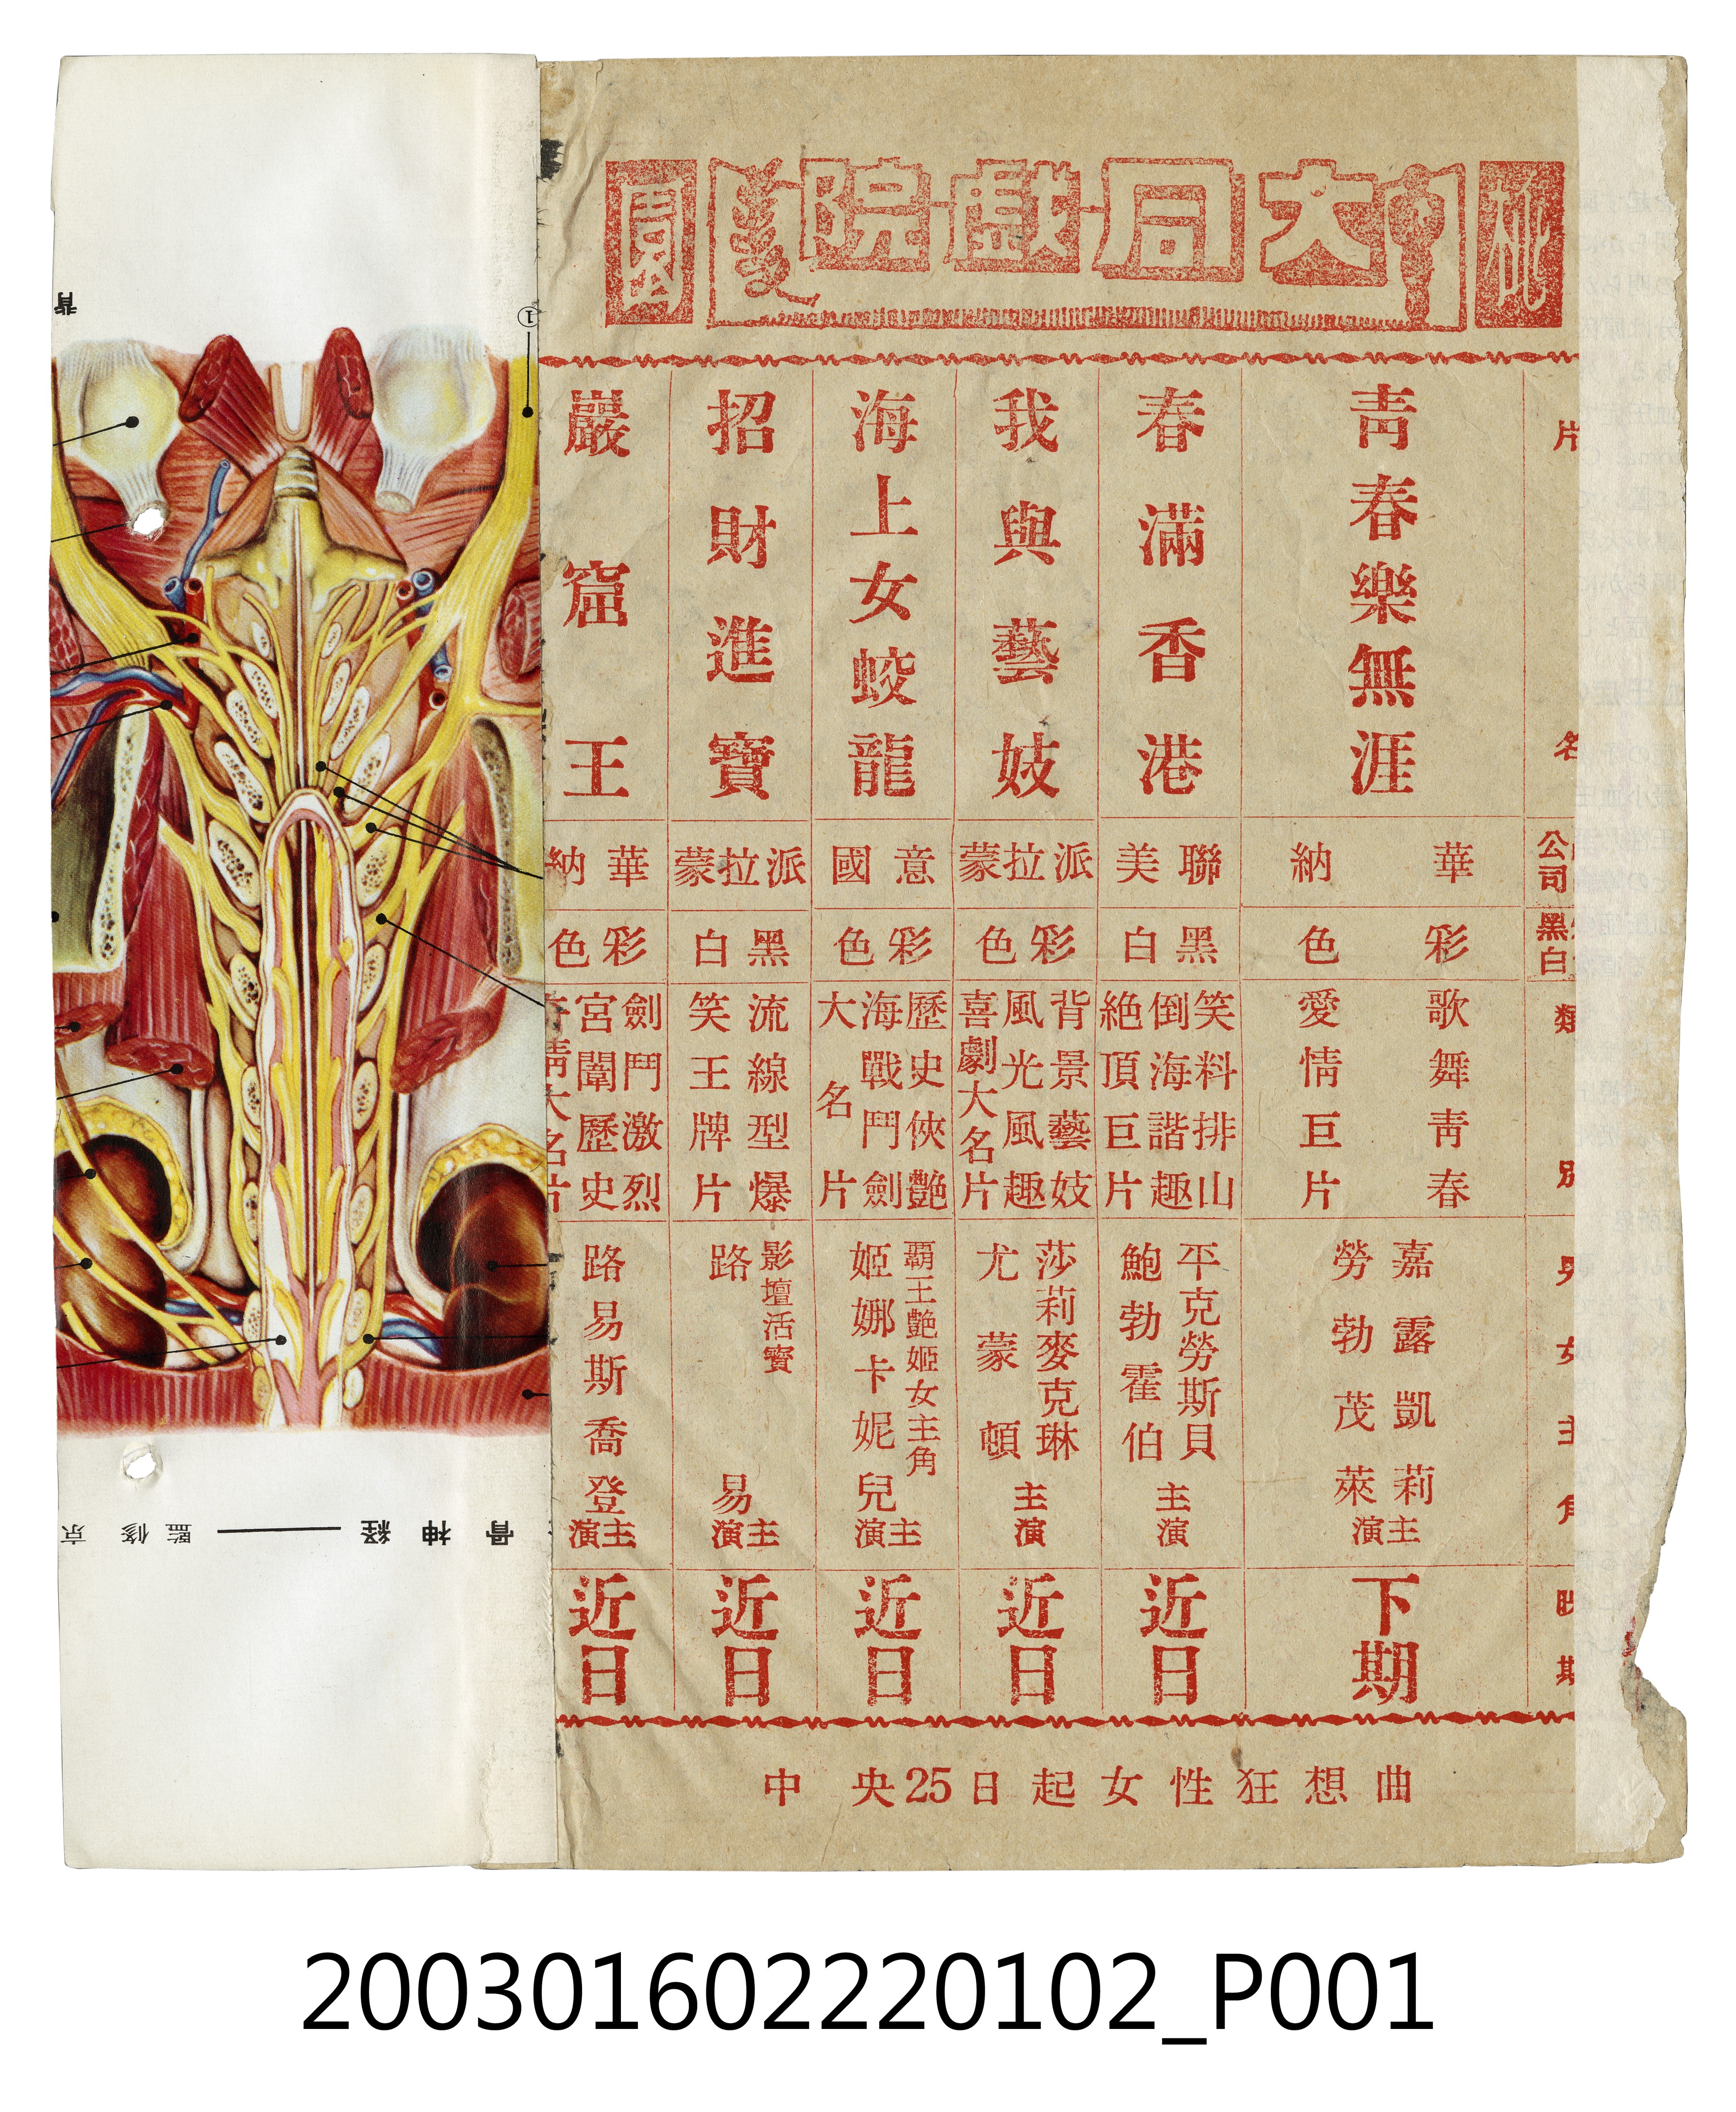 桃
大同戲院
園
片名
公司
黑白
類別
男女主角
映期
青春樂無涯
華納
彩色
歌舞青春
愛情巨片
嘉露凱莉
勞勃茂萊
主演
下期
春滿香港
聯美
黑白
笑料排山
倒海諧趣
絕頂巨片
平克勞斯貝
鮑勃霍伯
主演
近日
我與藝妓
派拉蒙
彩色
背景藝妓
風光風趣
喜劇大名片
莎莉麥克琳
尤蒙頓
主演
近日
海上女蛟龍
意國
彩色
歷史俠艷
海戰鬥劍
大名片
覇王艷姬女主角
姬娜卡妮兒
主演
近日
招財進寶
派拉蒙
黑白
流線型爆
笑王牌片
影壇活寶
路易
主演
近日
巖窟王
華納
彩色
劍鬥激烈
宮闈歷史
奇情大名片
路易斯喬登
主演
近日
中央25日起女性狂想曲
背
①
骨神経——監修 京
200301602220102_P001